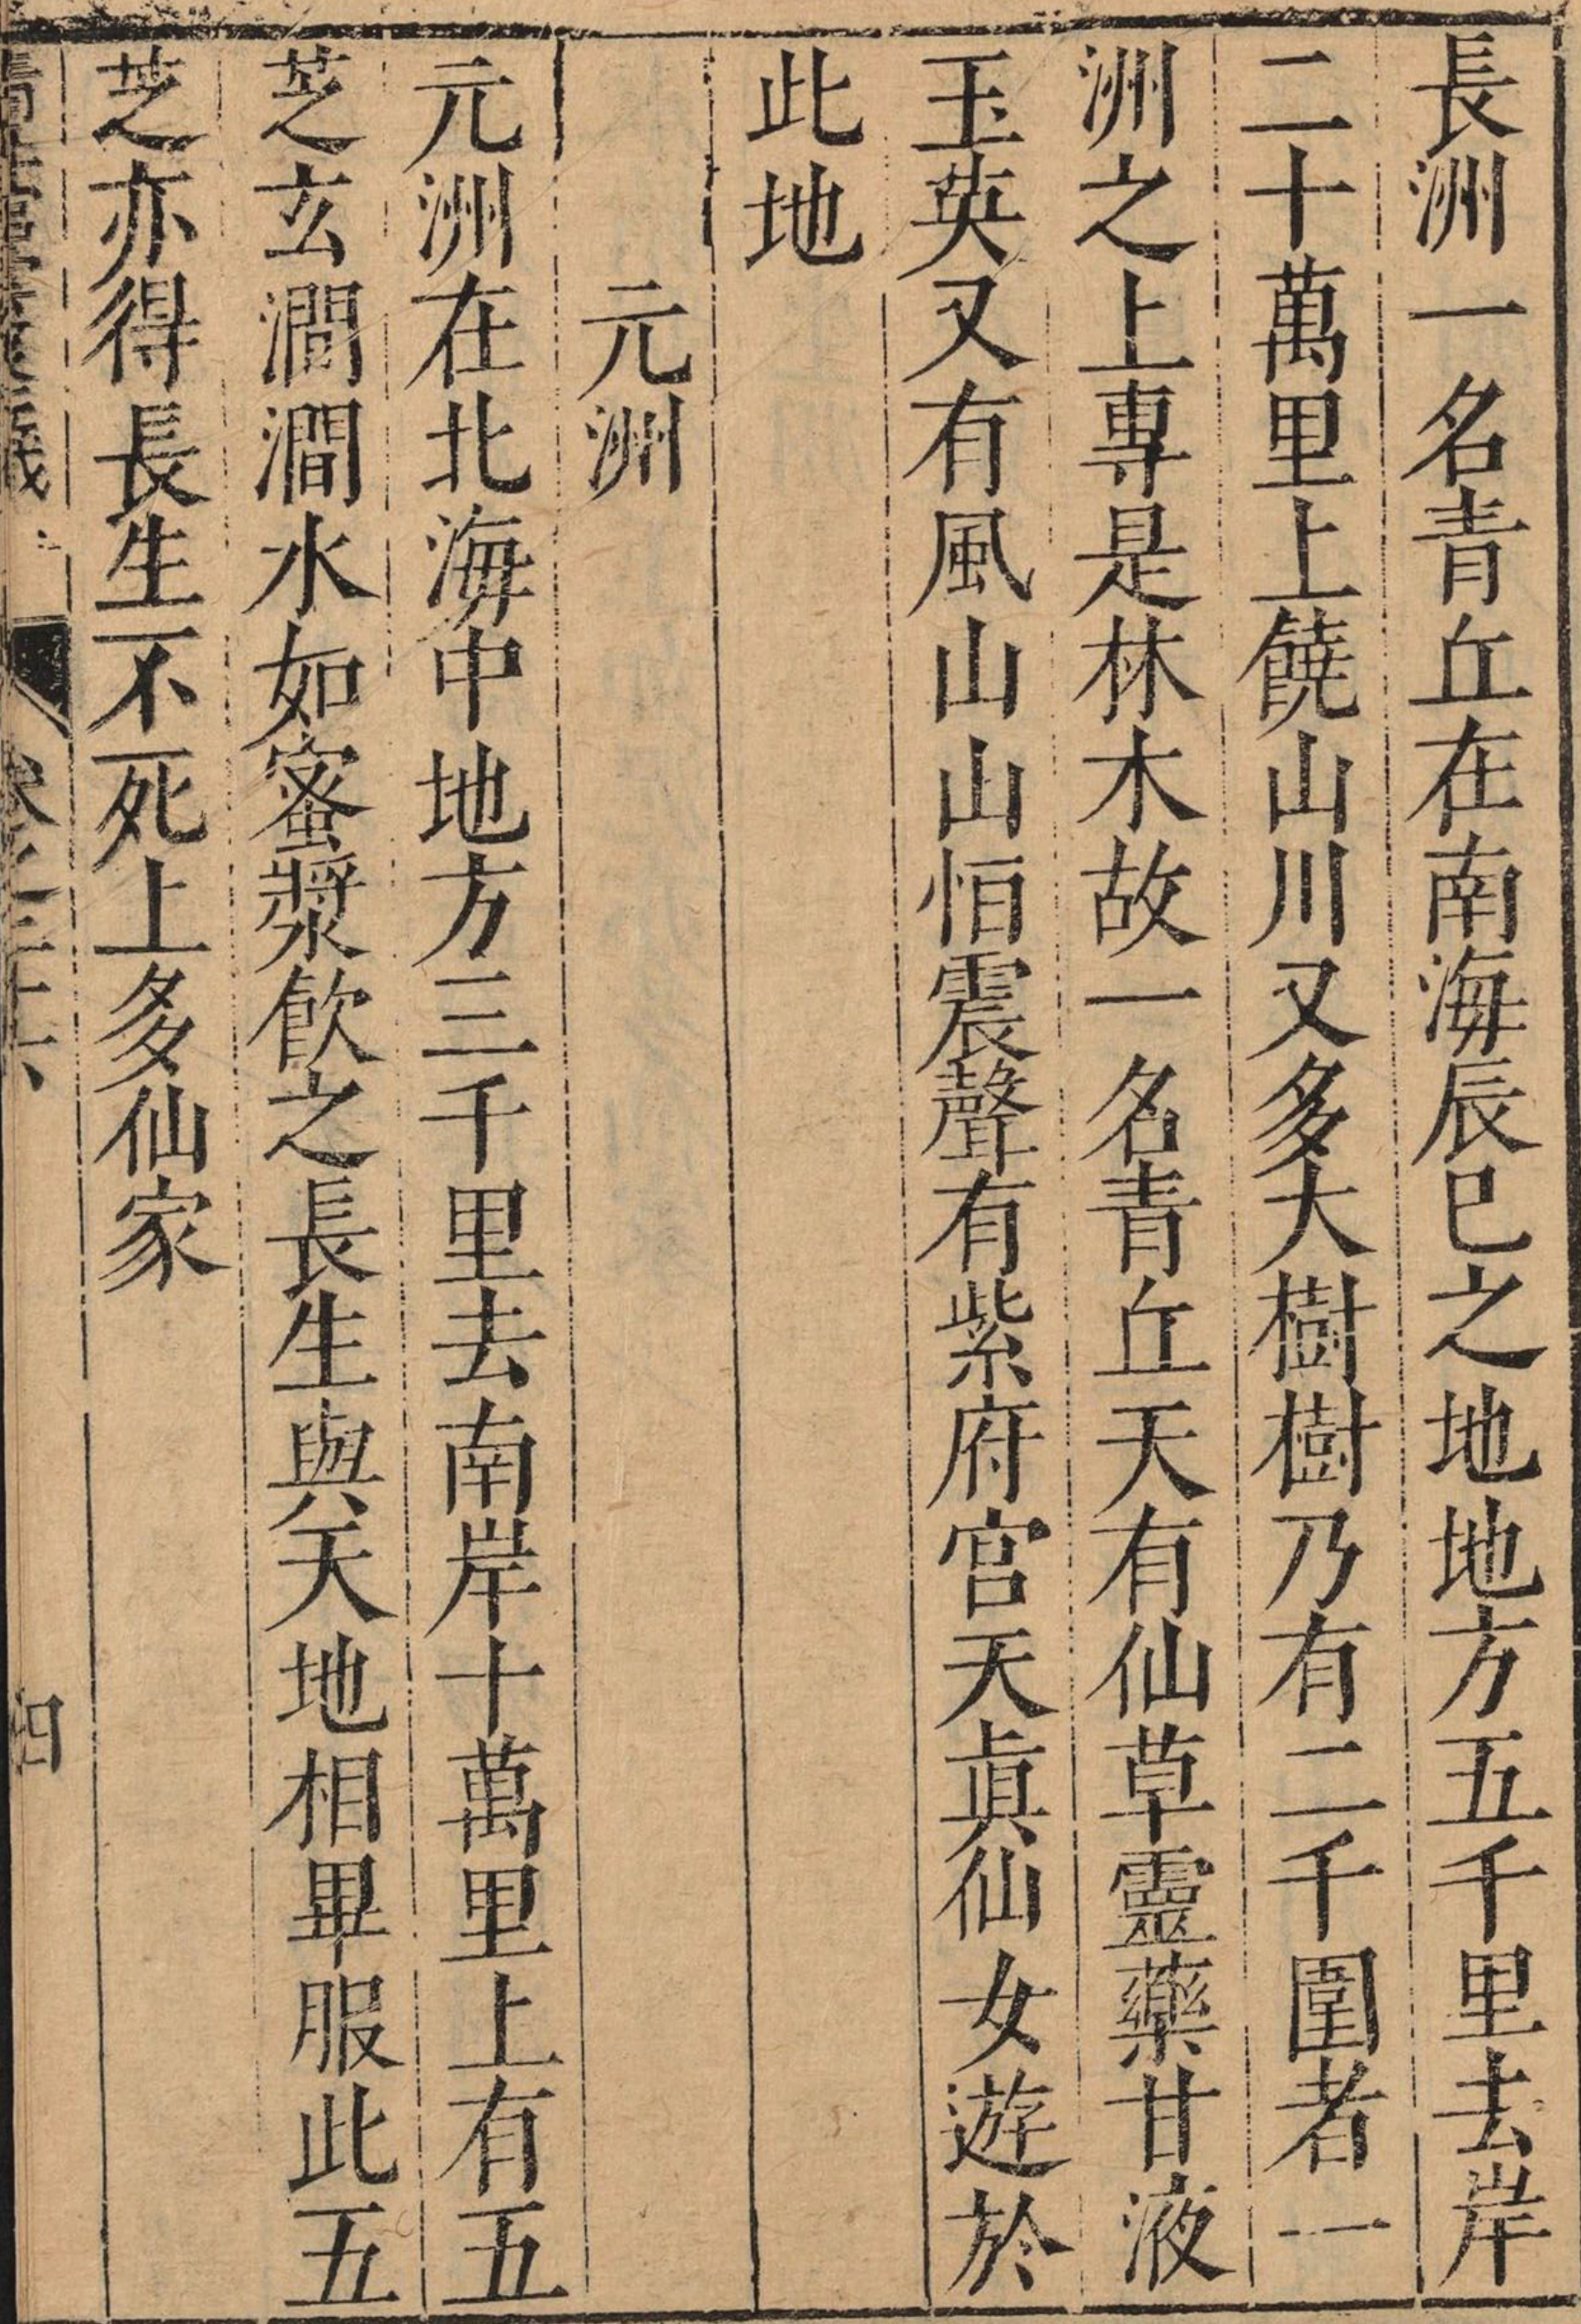 長洲一名青丘在南海辰巳之地地方五千里去岸
二十萬里上饒山川又多大樹樹乃有二千圍者一
洲之上專是林木故一名青丘天有仙草靈藥甘液
玉英又有風山山恒震聲有紫府宮天眞仙女遊於
此地
元洲
元洲在北海中地方三千里去南岸十萬里上有五
芝玄澗澗水如蜜漿飲之長生與天地相畢服此五
芝亦得長生不死上多仙家
卷之三十六
四